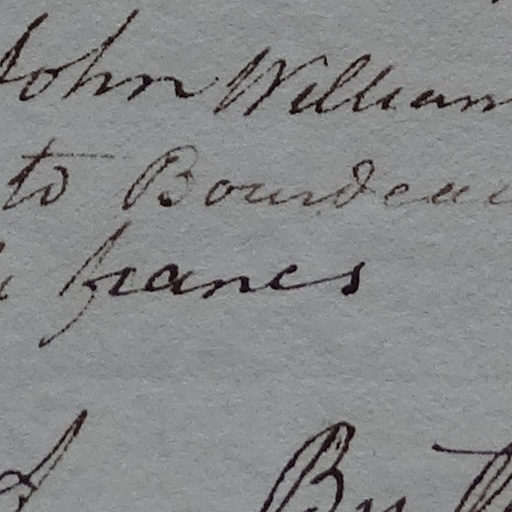 John William
to Bourdeau
francs
By